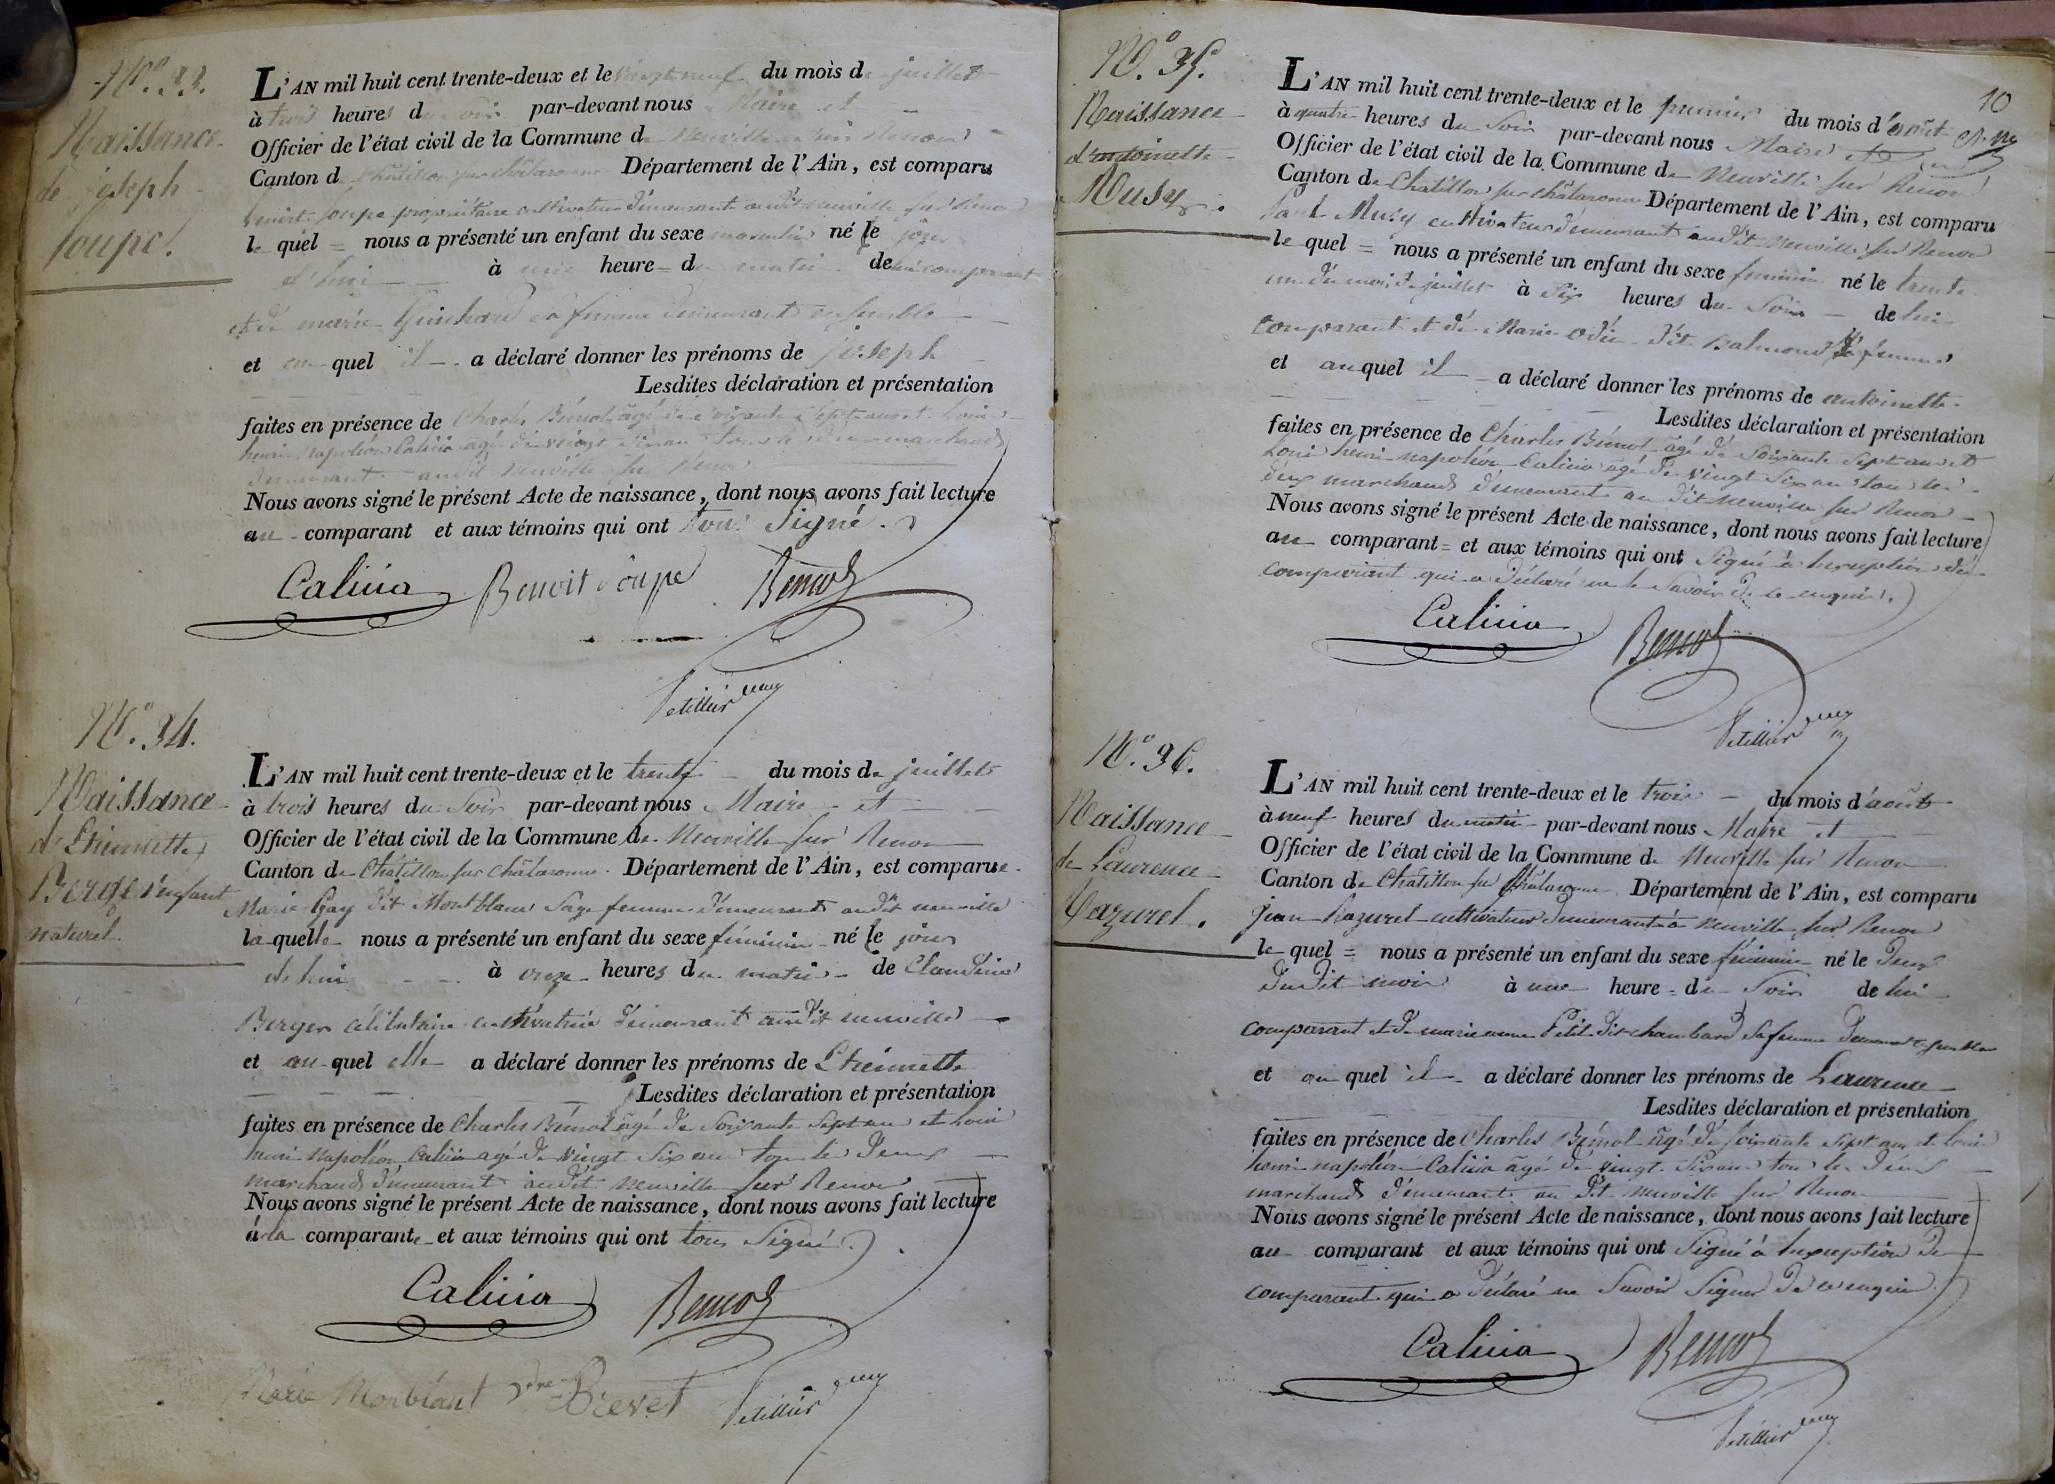 N.º 33.
Naissance
de joseph
Loupe.
L'AN mil huit cent trente-deux et le vingt neuf du mois de juillet
à trois heures du soir par-devant nous Maire et
Officier de l'état civil de la Commune de Neuville sur Renon
Canton de Châtillon sur châlaronne Département de l'Ain, est comparu
benoit loupe propriétaire cultivateur demeurant audit neuville sur Renon
le quel = nous a présenté un enfant du sexe masculin né le jour
d'hui à une heure = du matin de lui comparant
et de marie Guichard sa femme demeurant ensemble
et au quel il a déclaré donner les prénoms de joseph
Lesdites déclaration et présentation
faites en présence de Charles Bémol âgé de soixante sept ans et Loui
henri napoléon Calicia agé de vingt six an tous les deux marchands
demeurant audit neuville sur Renon
Nous avons signé le présent Acte de naissance, dont nous avons fait lecture
au comparant et aux témoins qui ont tous Signé.
Calicia Benoit Loupe Bemol
Petillier
N.º 34.
Naissance
d'Etiennette
Berger enfant
naturel.
L'AN mil huit cent trente-deux et le trente du mois de juillet
à trois heures du Soir par-devant nous Maire et
Officier de l'état civil de la Commune de Neuville sur Renon
Canton de Châtillon sur châlaronne. Département de l'Ain, est comparue
Marie Gay dit Montblanc Sage femme demeurant audit neuville
la quelle nous a présenté un enfant du sexe féminin né le jour
d'hui à onze heures du matin de Claudine
Berger célibataire cultivatrice demeurant audit neuville
et au quel elle a déclaré donner les prénoms de Etiennette
Lesdites déclaration et présentation
faites en présence de Charles Bémol agé de Soixante Sept an et Loui
henri Napoléon Calicia agé de vingt Six an tous les deux
marchands demeurant audit Neuville sur Renon
Nous avons signé le présent Acte de naissance, dont nous avons fait lecture
à la comparante et aux témoins qui ont tous Signé.
Calicia Bemol
Marie Monblant Brevet Petillier
10
N.º 35.
Naissance
d'antoinette
Musy.
L'AN mil huit cent trente-deux et le premier du mois d'août
à quatre heures du Soir par-devant nous Maire et
Officier de l'état civil de la Commune de Neuville sur Renon
Canton de Chatillon sur châlaronne Département de l'Ain, est comparu
Musy cultivateur demeurant audit Neuville sur Renon
le quel = nous a présenté un enfant du sexe feminin né le trente
un du mois de juillet à Six heures du Soir de lui
comparant et de Marie Odin dit Balmond Sa femme
et auquel il a déclaré donner les prénoms de antoinette
Lesdites déclaration et présentation
faites en présence de Charles Bémol âgé de Soixante Sept an et
Loui henri napoléon Calicia agé de vingt Six an tous les
deux marchands demeurant au dit Neuville sur Renon
Nous avons signé le présent Acte de naissance, dont nous avons fait lecture
au comparant = et aux témoins qui ont Signé à l'exception du
comparant qui a déclaré ne le Savoir de ce enquis.
Calicia Bemol
Petillier
N.º 36.
Naissance
de Laurence
Razurel.
L'AN mil huit cent trente-deux et le trois du mois d'août
à neuf heures du matin par-devant nous Maire et
Officier de l'état civil de la Commune de Neuville sur Renon
Canton de Châtillon sur Châlaronne Département de l'Ain, est comparu
jean Razurel cultivateur demeurant à Neuville sur Renon
le quel = nous a présenté un enfant du sexe féminin né le deux
dudit mois à une heure = du Soir de lui
comparant et de marie anne Petit dit chambard Sa femme demeurant ensemble
et au quel il a déclaré donner les prénoms de Laurence
Lesdites déclaration et présentation
faites en présence de Charles Bémol âgé de soixante sept ans et Loui
henri napoléon Calicia âgé de vingt Six an tous les deux
marchands demeurant au dit Neuville sur Renon
Nous avons signé le présent Acte de naissance, dont nous avons fait lecture
au comparant et aux témoins qui ont Signé à l'exception du
comparant qui a déclaré ne Savoir Signer de ce enquis.
Calicia Bemol
Petillier